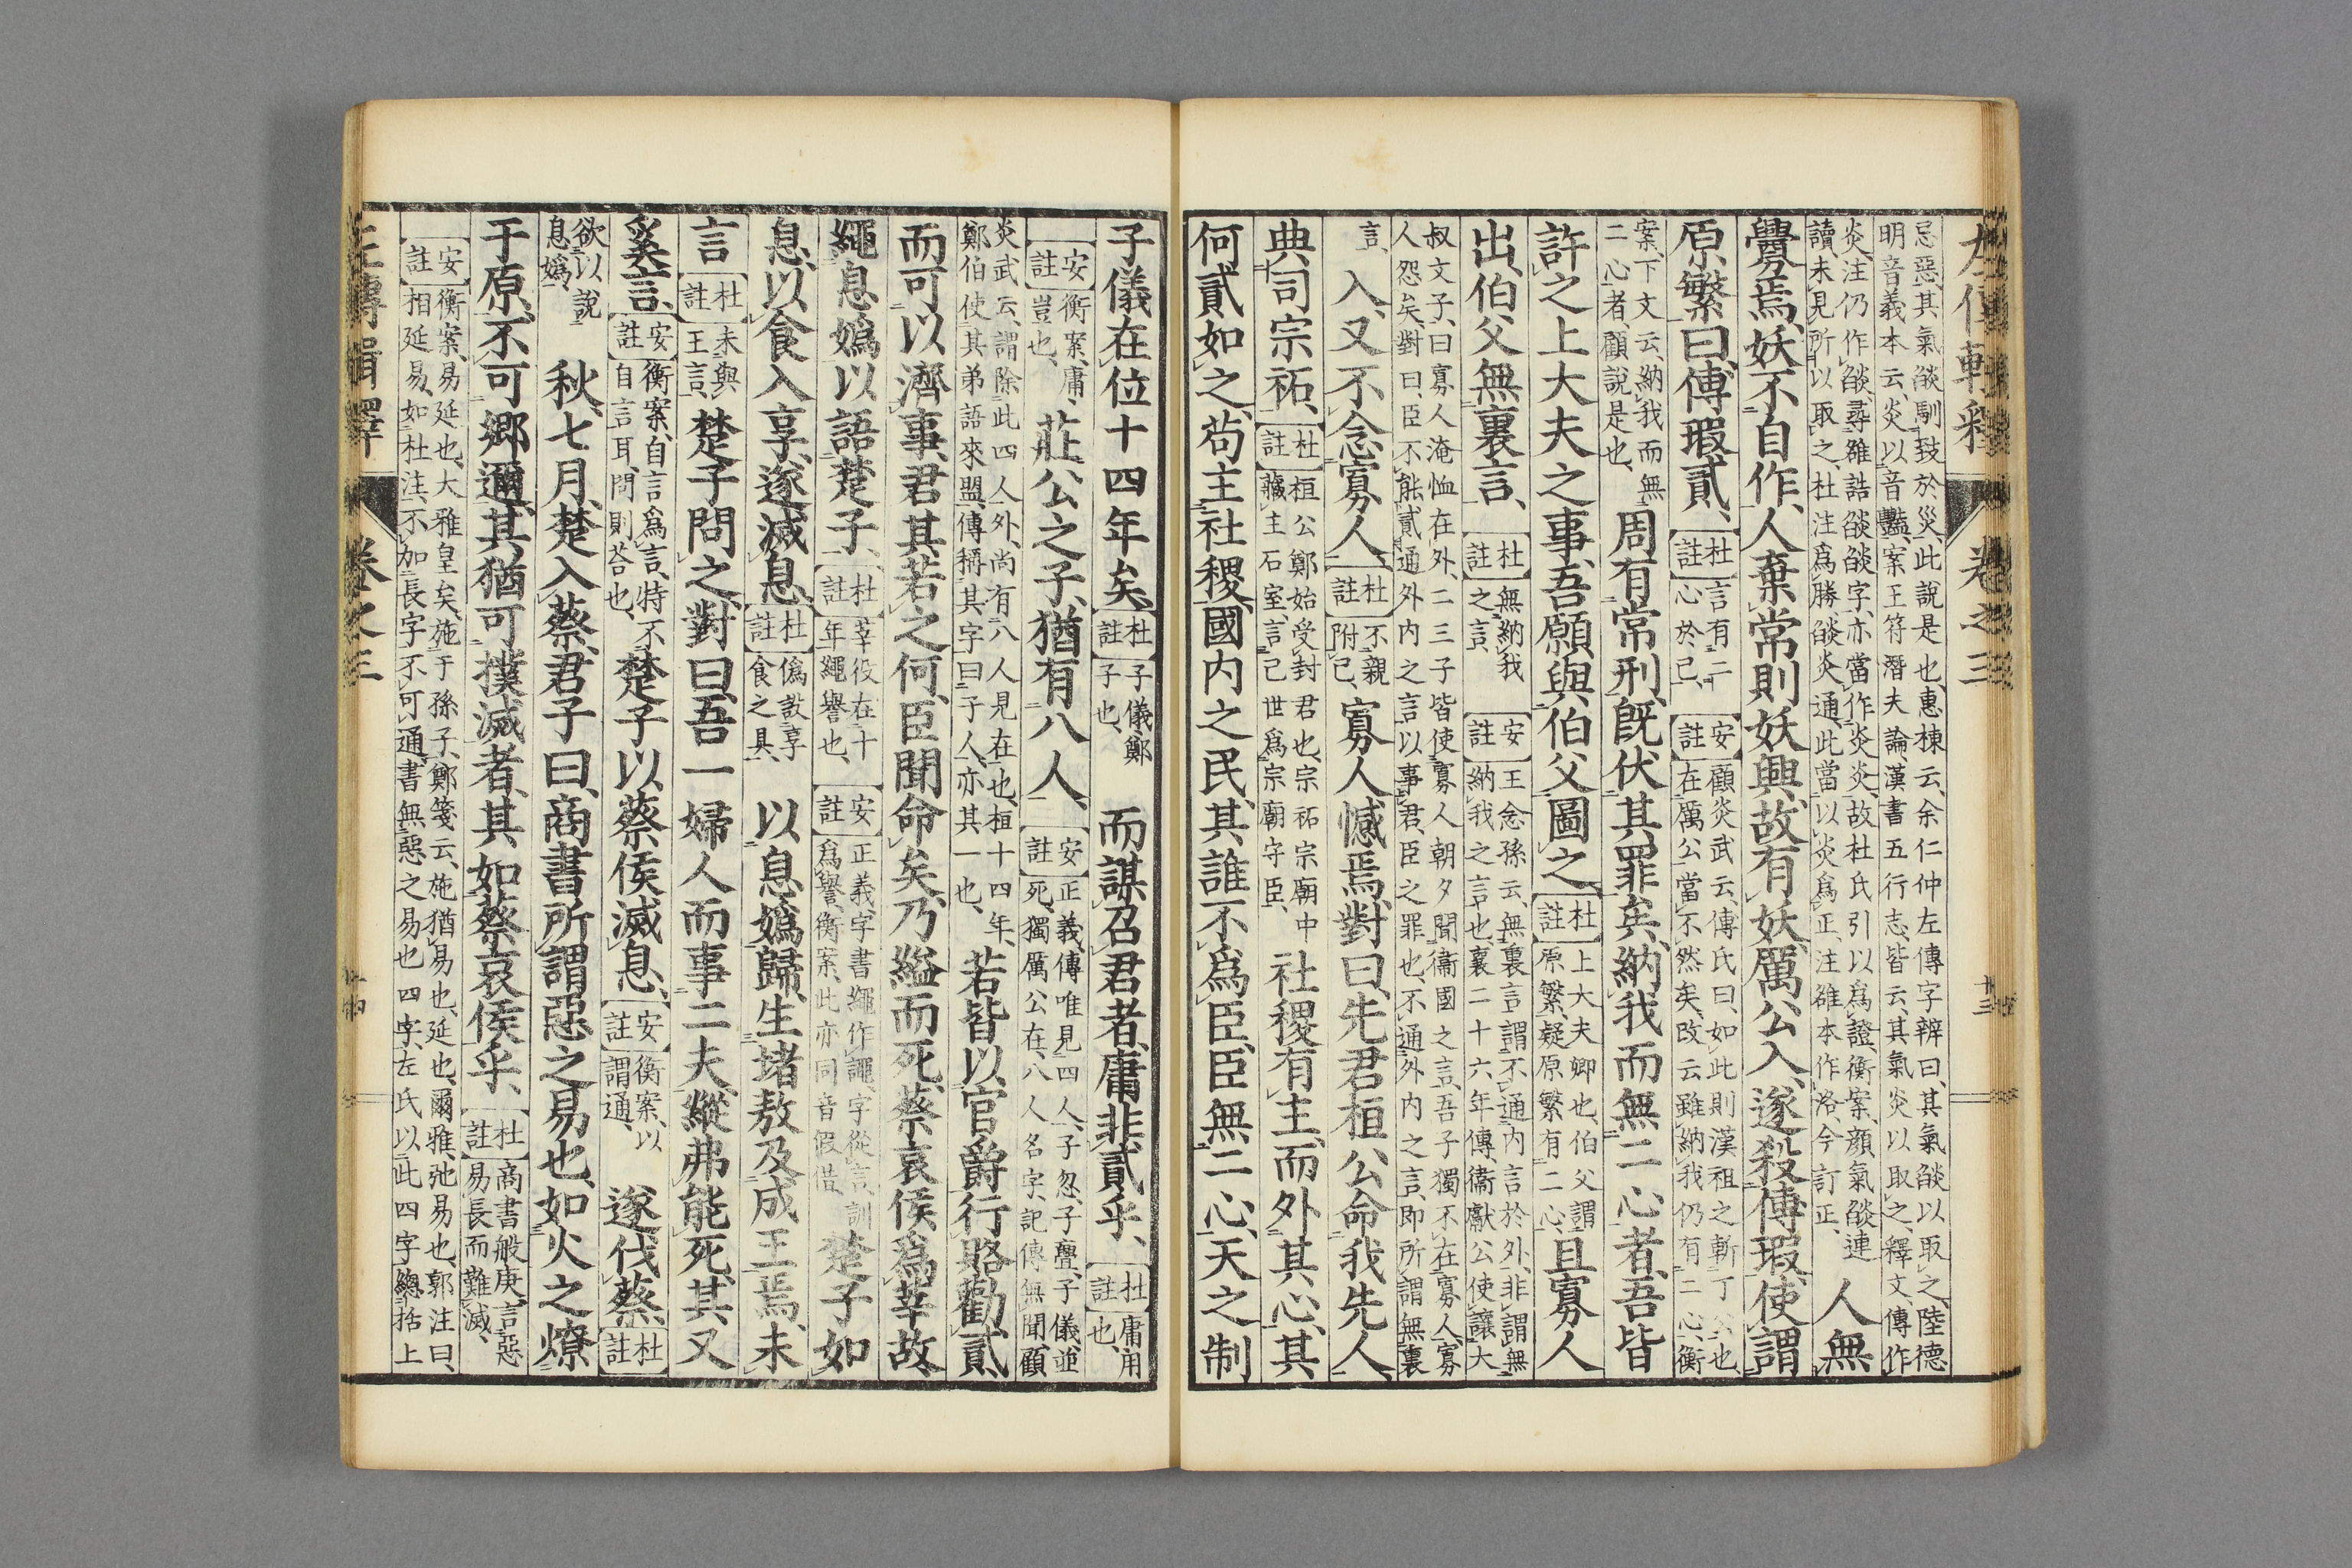 左傳輯釋 卷之三 十三
忌惡其氣燄馴致於災此說是也惠棟云余仁仲左傳字辨曰其氣燄以取之陸德
明音義本云炎以音豔案王符潛夫論漢書五行志皆云其氣炎以取之釋文傳作
炎注仍作燄尋雒誥燄燄字亦當作炎炎故杜氏引以爲證衡案顏氣燄連
讀未見所以取之杜注爲勝燄炎通此當以炎爲正注雒本作洛今訂正 人無
釁焉妖不自作人棄常則妖興故有妖厲公入遂殺傅瑕使謂
原繁曰傅瑕貳 杜註 言有二心於己 安註 顧炎武云傅氏曰如此則漢祖之斬丁公也在厲公當不然矣改云雖納我仍有二心衡
案下文云納我而無二心者顧說是也 周有常刑既伏其罪矣納我而無二心者吾皆
許之上大夫之事吾願與伯父圖之 杜註 上大夫卿也伯父謂原繁疑原繁有二心 且寡人
出伯父無裏言 杜註 無納我之言 安註 王念孫云無裏言謂不通內言於外非謂無納我之言也襄二十六年傳衞獻公使讓大
叔文子曰寡人淹恤在外二三子皆使寡人朝夕聞衞國之言吾子獨不在寡人寡
人怨矣對曰臣不能貳通外內之言以事君臣之罪也不通外內之言即所謂無裏
言 入又不念寡人 杜註 不親附己 寡人憾焉對曰先君桓公命我先人
典司宗祏 杜註 桓公鄭始受封君也宗祏宗廟中藏主石室言己世爲宗廟守臣 社稷有主而外其心其
何貳如之苟主社稷國內之民其誰不爲臣臣無二心天之制
子儀在位十四年矣 杜註 子儀鄭子也 而謀召君者庸非貳乎 杜註 庸用也
安註 衡案庸豈也 莊公之子猶有八人 安註 正義傳唯見四人子忽子亹子儀並死獨厲公在八人名字記傳無聞顧
炎武云謂除此四人外尚有八人見在也桓十四年
鄭伯使其弟語來盟傳稱其字曰子人亦其一也 若皆以官爵行賂勸貳
而可以濟事君其若之何臣聞命矣乃縊而死蔡哀侯爲莘故
繩息嬀以語楚子 杜註 莘役在十年繩譽也 安註 正義字書繩作譝字從言訓爲譽衡案此亦同音假借 楚子如
息以食入享遂滅息 杜註 僞設享食之具 以息嬀歸生堵敖及成王焉未
言 杜註 未與王言 楚子問之對曰吾一婦人而事二夫縱弗能死其又
奚言 安註 衡案自言爲言特不自言耳問則荅也 楚子以蔡侯滅息 安註 衡案以謂通 遂伐蔡 杜註
欲以說息嬀 秋七月楚入蔡君子曰商書所謂惡之易也如火之燎
于原不可鄉邇其猶可撲滅者其如蔡哀侯乎 杜註 商書般庚言惡易長而難滅
安註 衡案易延也大雅皇矣施于孫子鄭箋云施猶易也延也爾雅弛易也郭注曰相延易如杜注不加長字不可通書無惡之易也四字左氏以此四字總括上
左傳輯釋 卷之三 十四